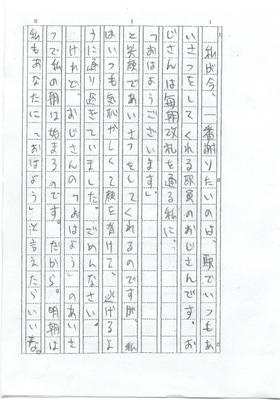 私が今、一番謝りたいのは、駅でいつもあ
いさつをしてくれる駅員のおじさんです。お
じさんは毎朝改札を通る私に、
「おはようございます」
と笑顔であいさつをしてくれるのですが、私
はいつも気恥かしくて顔を背けて、逃げるよ
うに通り過ぎていました。ごめんなさい。
けれど、おじさんの「おはよう」のあいさ
つで私の朝は始まるのです。だから。明朝は
私もあなたに「おはよう」と言えたらいいな。